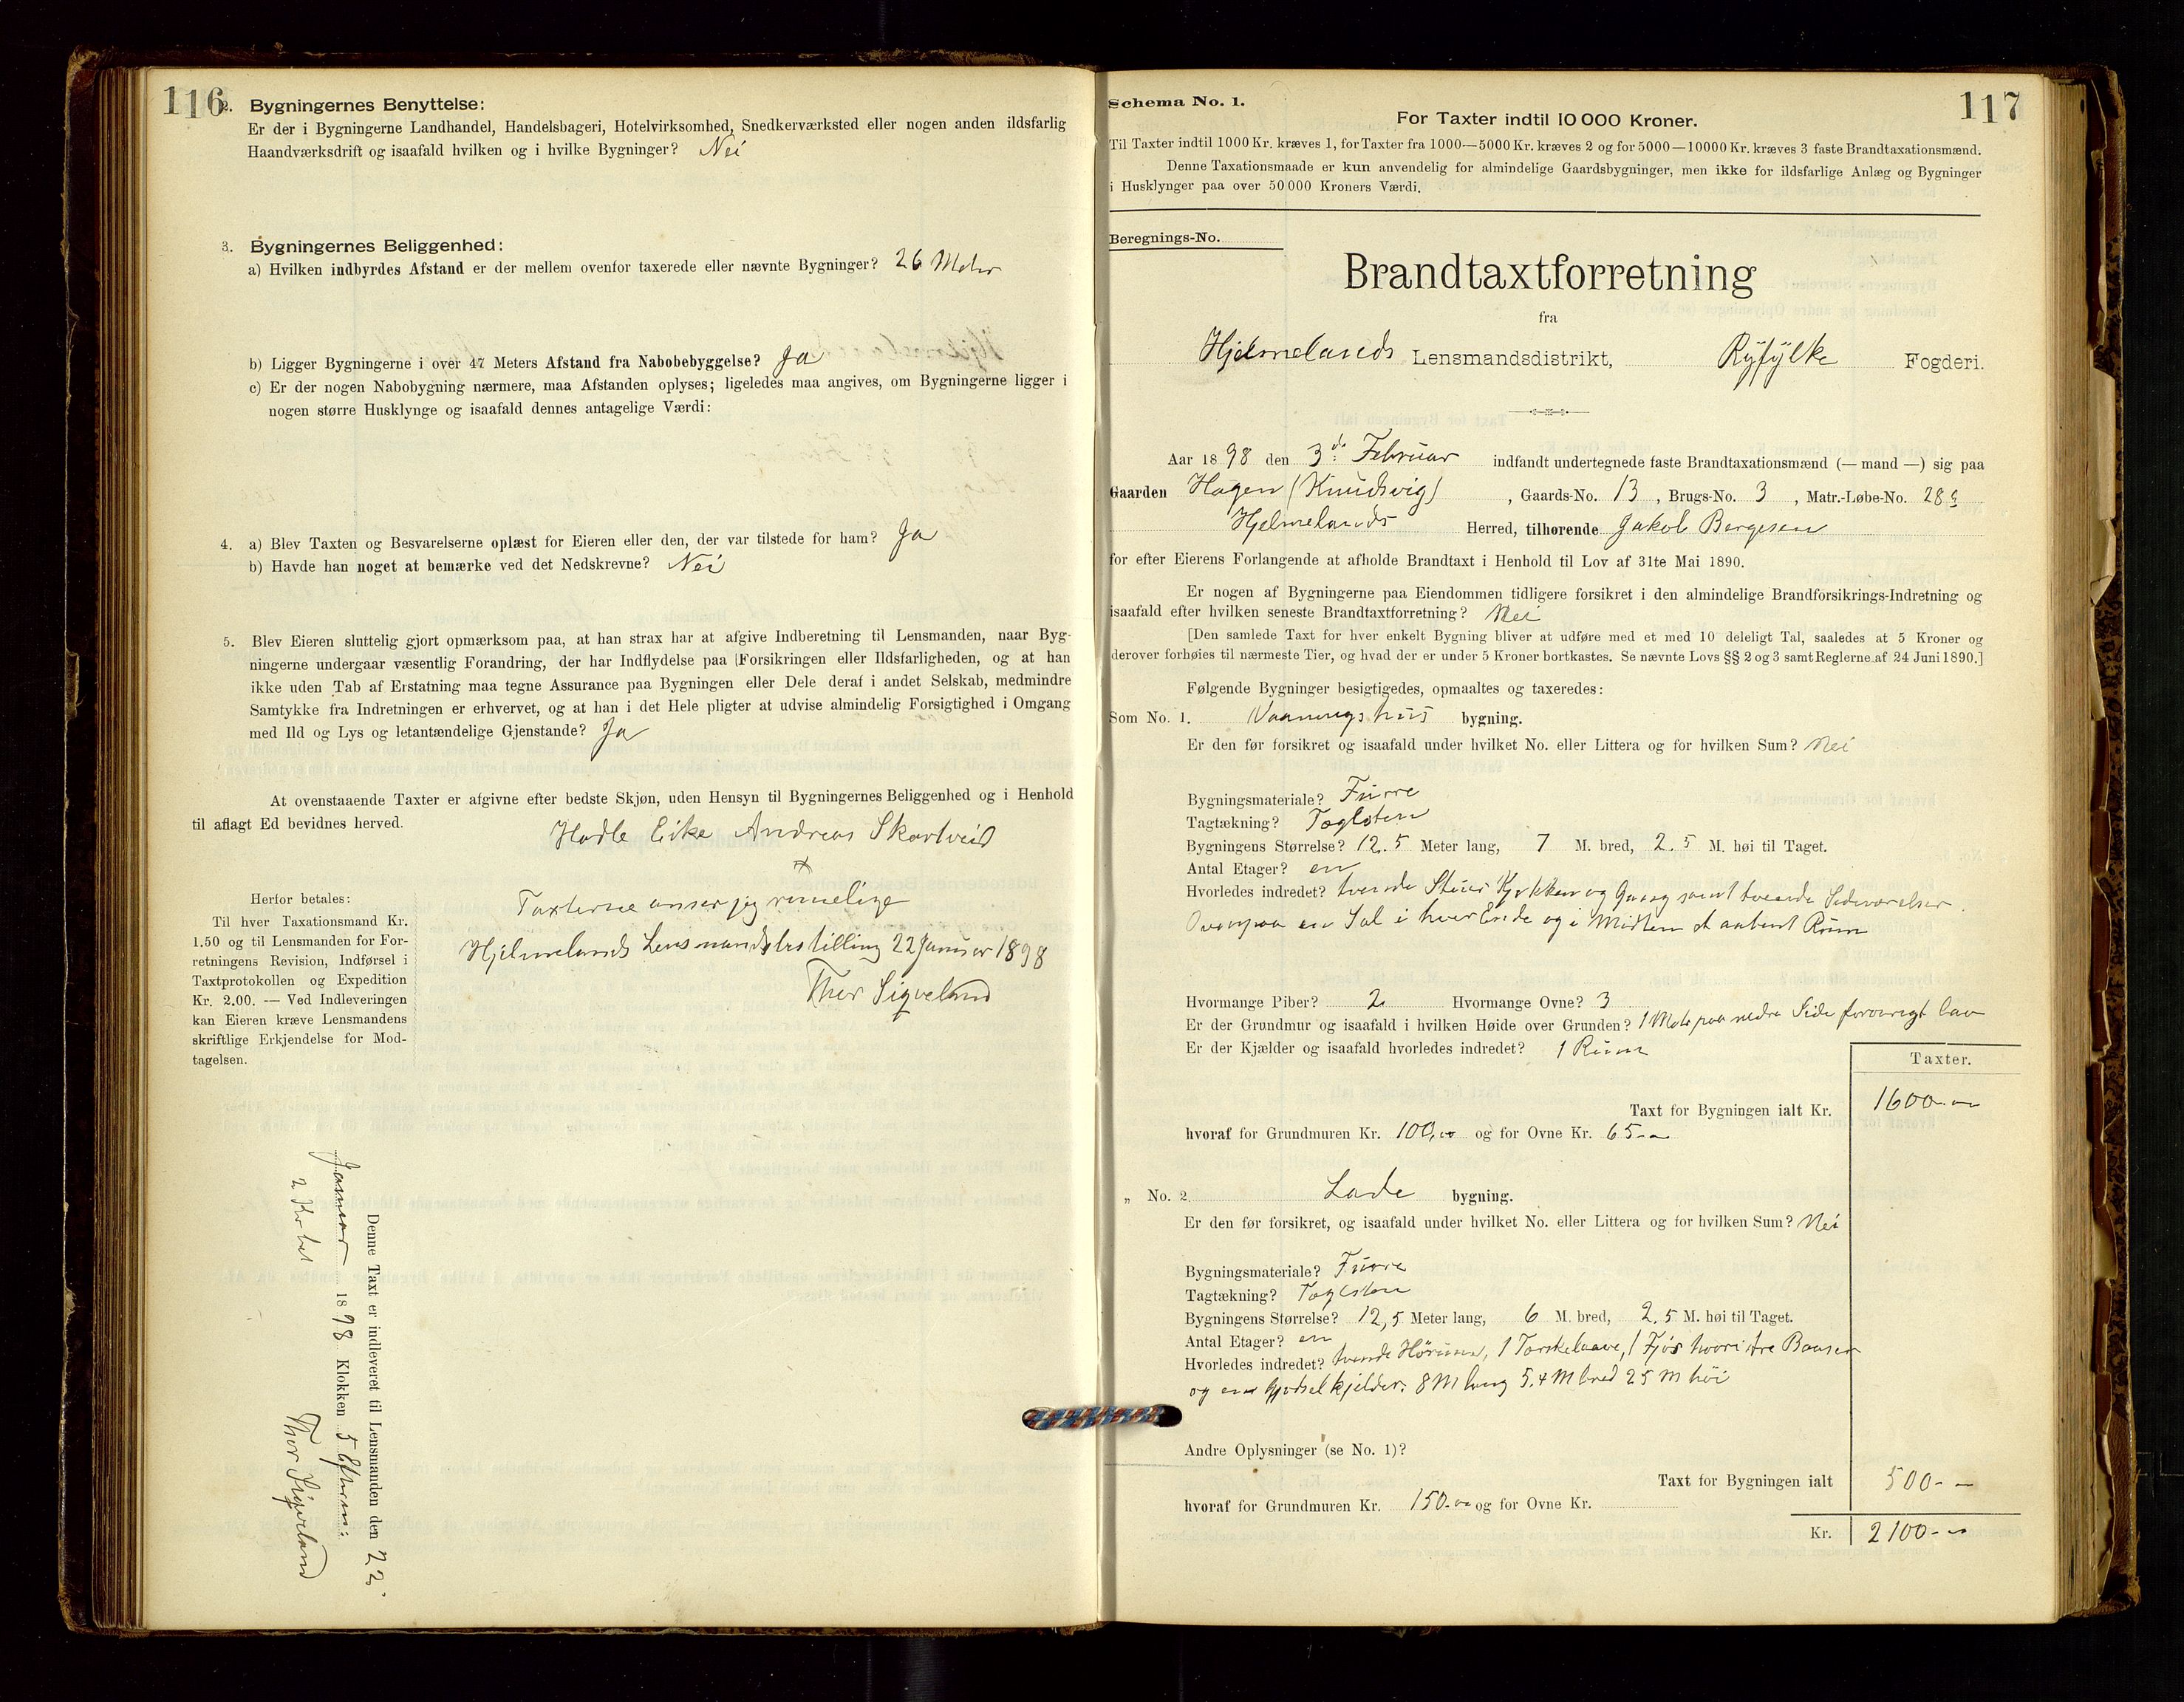 116
2. Bygningernes Benyttelse:
Er der i Bygningerne Landhandel, Handelsbageri, Hotelvirksomhed, Snedkerværksted eller nogen anden ildsfarlig
Haandværksdrift og isaafald hvilken og i hvilke Bygninger? Nei
3. Bygningernes Beliggenhed:
a) Hvilken indbyrdes Afstand er der mellem ovenfor taxerede eller nævnte Bygninger? 26 Meter
b) Ligger Bygningerne i over 47 Meters Afstand fra Nabobebyggelse? Ja
c) Er der nogen Nabobygning nærmere, maa Afstanden oplyses; ligeledes maa angives, om Bygningerne ligger i
nogen større Husklynge og isaafald dennes antagelige Værdi:
4. a) Blev Taxten og Besvarelserne oplæst for Eieren eller den, der var tilstede for ham? Ja
b) Havde han noget at bemærke ved det Nedskrevne? Nei
5. Blev Eieren sluttelig gjort opmærksom paa, at han strax har at afgive Indberetning til Lensmanden, naar Byg-
ningerne undergaar væsentlig Forandring, der har Indflydelse paa Forsikringen eller Ildsfarligheden, og at han
ikke uden Tab af Erstatning maa tegne Assurance paa Bygningen eller Dele deraf i andet Selskab, medmindre
Samtykke fra Indretningen er erhvervet, og at han i det Hele pligter at udvise almindelig Forsigtighed i Omgang
med Ild og Lys og letantændelige Gjenstande? Ja
At ovenstaaende Taxter er afgivne efter bedste Skjøn, uden Hensyn til Bygningernes Beliggenhed og i Henhold
til aflagt Ed bevidnes herved.
Hadle Eike Andreas Skartveid
Taxterne anser jeg rimelige
Hjelmelands Lensmandsbestilling 22 Januar 1898
Thor Sigveland
Herfor betales:
Til hver Taxationsmand Kr.
1.50 og til Lensmanden for For-
retningens Revision, Indførsel i
Taxtprotokollen og Expedition
Kr. 2.00. — Ved Indleveringen
kan Eieren kræve Lensmandens
skriftlige Erkjendelse for Mod-
tagelsen.
Denne Taxt er indleveret til Lensmanden den 22
Januar 1898 Klokken 5 Efterm:
2 Kr bet
Thor Sigveland
117
Schema No. 1.
For Taxter indtil 10 000 Kroner.
Til Taxter indtil 1000 Kr. kræves 1, for Taxter fra 1000—5000 Kr. kræves 2 og for 5000—10000 Kr. kræves 3 faste Brandtaxationsmænd.
Denne Taxationsmaade er kun anvendelig for almindelige Gaardsbygninger, men ikke for ildsfarlige Anlæg og Bygninger
i Husklynger paa over 50 000 Kroners Værdi.
Beregnings-No.
Brandtaxtforretning
fra
Hjelmelands Lensmandsdistrikt, Ryfylke Fogderi.
Aar 1898 den 3de Februar indfandt undertegnede faste Brandtaxationsmænd (— mand —) sig paa
Gaarden Hagen (Knudsvig), Gaards-No. 13, Brugs-No. 3, Matr.-Løbe-No. 28
Hjelmelands Herred, tilhørende Jakob Bergesen
for efter Eierens Forlangende at afholde Brandtaxt i Henhold til Lov af 31te Mai 1890.
Er nogen af Bygningerne paa Eiendommen tidligere forsikret i den almindelige Brandforsikrings-Indretning og
isaafald efter hvilken seneste Brandtaxtforretning? Nei
[Den samlede Taxt for hver enkelt Bygning bliver at udføre med et med 10 deleligt Tal, saaledes at 5 Kroner og
derover forhøies til nærmeste Tier, og hvad der er under 5 Kroner bortkastes. Se nævnte Lovs §§ 2 og 3 samt Reglerne af 24 Juni 1890.]
Følgende Bygninger besigtigedes, opmaaltes og taxeredes:
Som No. 1. Vaaningshus bygning.
Er den før forsikret og isaafald under hvilket No. eller Littera og for hvilken Sum? Nei
Bygningsmateriale? Furre
Tagtækning? Taglsten
Bygningens Størrelse? 12.5 Meter lang, 7 M. bred, 2.5 M. høi til Taget.
Antal Etager? en
Hvorledes indredet? tvende Stuer Kjøkken og Gang samt tvende Sideværelser.
Ovenpaa en Sal i hver Ende og i Midten et aabent Rum
Hvormange Piber? 2 Hvormange Ovne? 3
Er der Grundmur og isaafald i hvilken Høide over Grunden? 1 Meter paa nedre Side forøvrigt lav
Er der Kjælder og isaafald hvorledes indredet? 1 Rum
Taxter.
Taxt for Bygningen ialt Kr. 1600.-
hvoraf for Grundmuren Kr. 100,00 og for Ovne Kr. 65.-
„ No. 2 Lade bygning.
Er den før forsikret, og isaafald under hvilket No. eller Littera og for hvilken Sum? Nei
Bygningsmateriale? Furre
Tagtækning? Taglsten
Bygningens Størrelse? 12,5 Meter lang, 6 M. bred, 2.5 M. høi til Taget.
Antal Etager? en
Hvorledes indredet? tvende Hørum, 1 Tærskelaave, 1 Fjøs hvori tre Baaser
og en Gjødselkjelder. 8 M lang 5.4 M bred 2 5 M høi
Andre Oplysninger (se No. 1)?
Taxt for Bygningen ialt 500--
hvoraf for Grundmuren Kr. 150.00 og for Ovne Kr.
Kr. 2100--